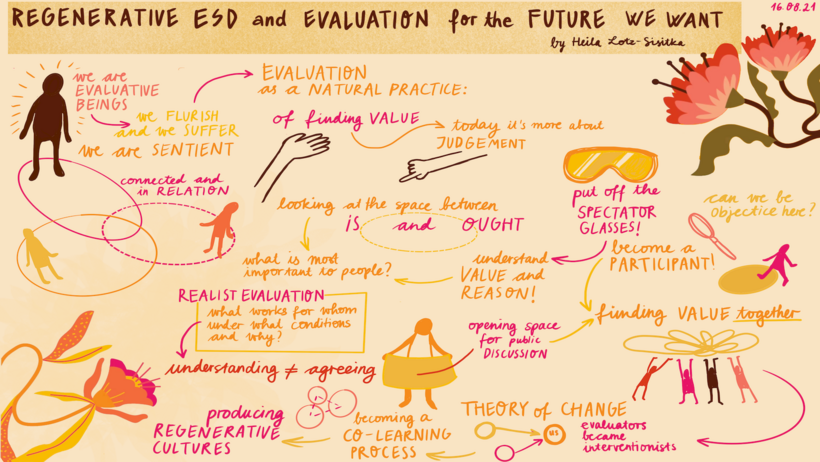 REGENERATIVE ESD and EVALUATION for the FUTURE WE WANT
by Heila Lotz-Sisitka
16.08.21
we are
EVALUATIVE
BEINGS
we FLURISH
and we SUFFER
we are SENTIENT
EVALUATION
as a NATURAL PRACTICE:
of finding VALUE
today it's more about
JUDGEMENT
connected and
in RELATION
looking at the space between
IS and OUGHT
what is most
important to people?
understand
VALUE and
REASON!
put off the
SPECTATOR
GLASSES!
can we be
objectice here?
become a
PARTICIPANT!
finding VALUE together
REALIST EVALUATION
what works for whom
under what conditions
and why?
understanding ≠ agreeing
opening space
for public
DISCUSSION
THEORY of CHANGE
US
evaluators
became
interventionists
becoming a
CO-LEARNING
PROCESS
producing
REGENERATIVE
CULTURES